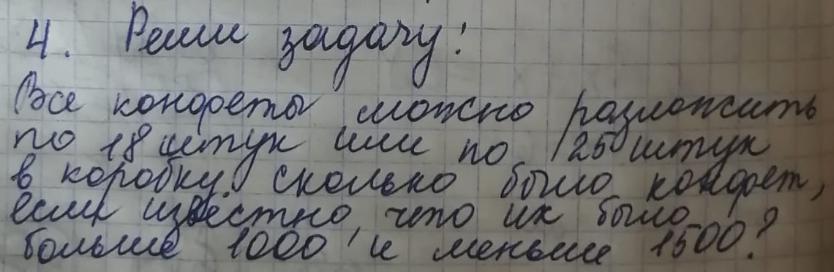 4. Реши задачу:
Все конфеты можно разложить
по 18 штук или по 25 штук
в коробку. Сколько было конфет,
если известно, что их было
больше 1000 и меньше 1500?